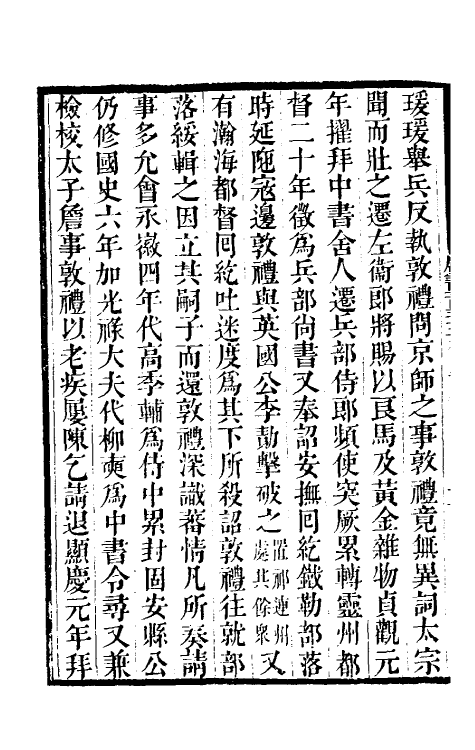 瑗瑗舉兵反執敦禮問京師之事敦禮竟無異詞太宗
聞而壯之遷左衞郎將賜以良馬及黃金雜物貞觀元
年擢拜中書舍人遷兵部侍郎頻使突厥累轉靈州都
督二十年徵爲兵部尚書又奉詔安撫回紇鐵勒部落
時延陁寇邊敦禮與英國公李勣擊破之置祁連州處其餘衆又
有瀚海都督回紇吐迷度爲其下所殺詔敦禮往就部
落綏輯之因立其嗣子而還敦禮深識蕃情凡所奏請
事多允會永徽四年代高季輔爲侍中累封固安縣公
仍修國史六年加光祿大夫代柳奭爲中書令尋又兼
檢校太子詹事敦禮以老疾屢陳乞請退顯慶元年拜